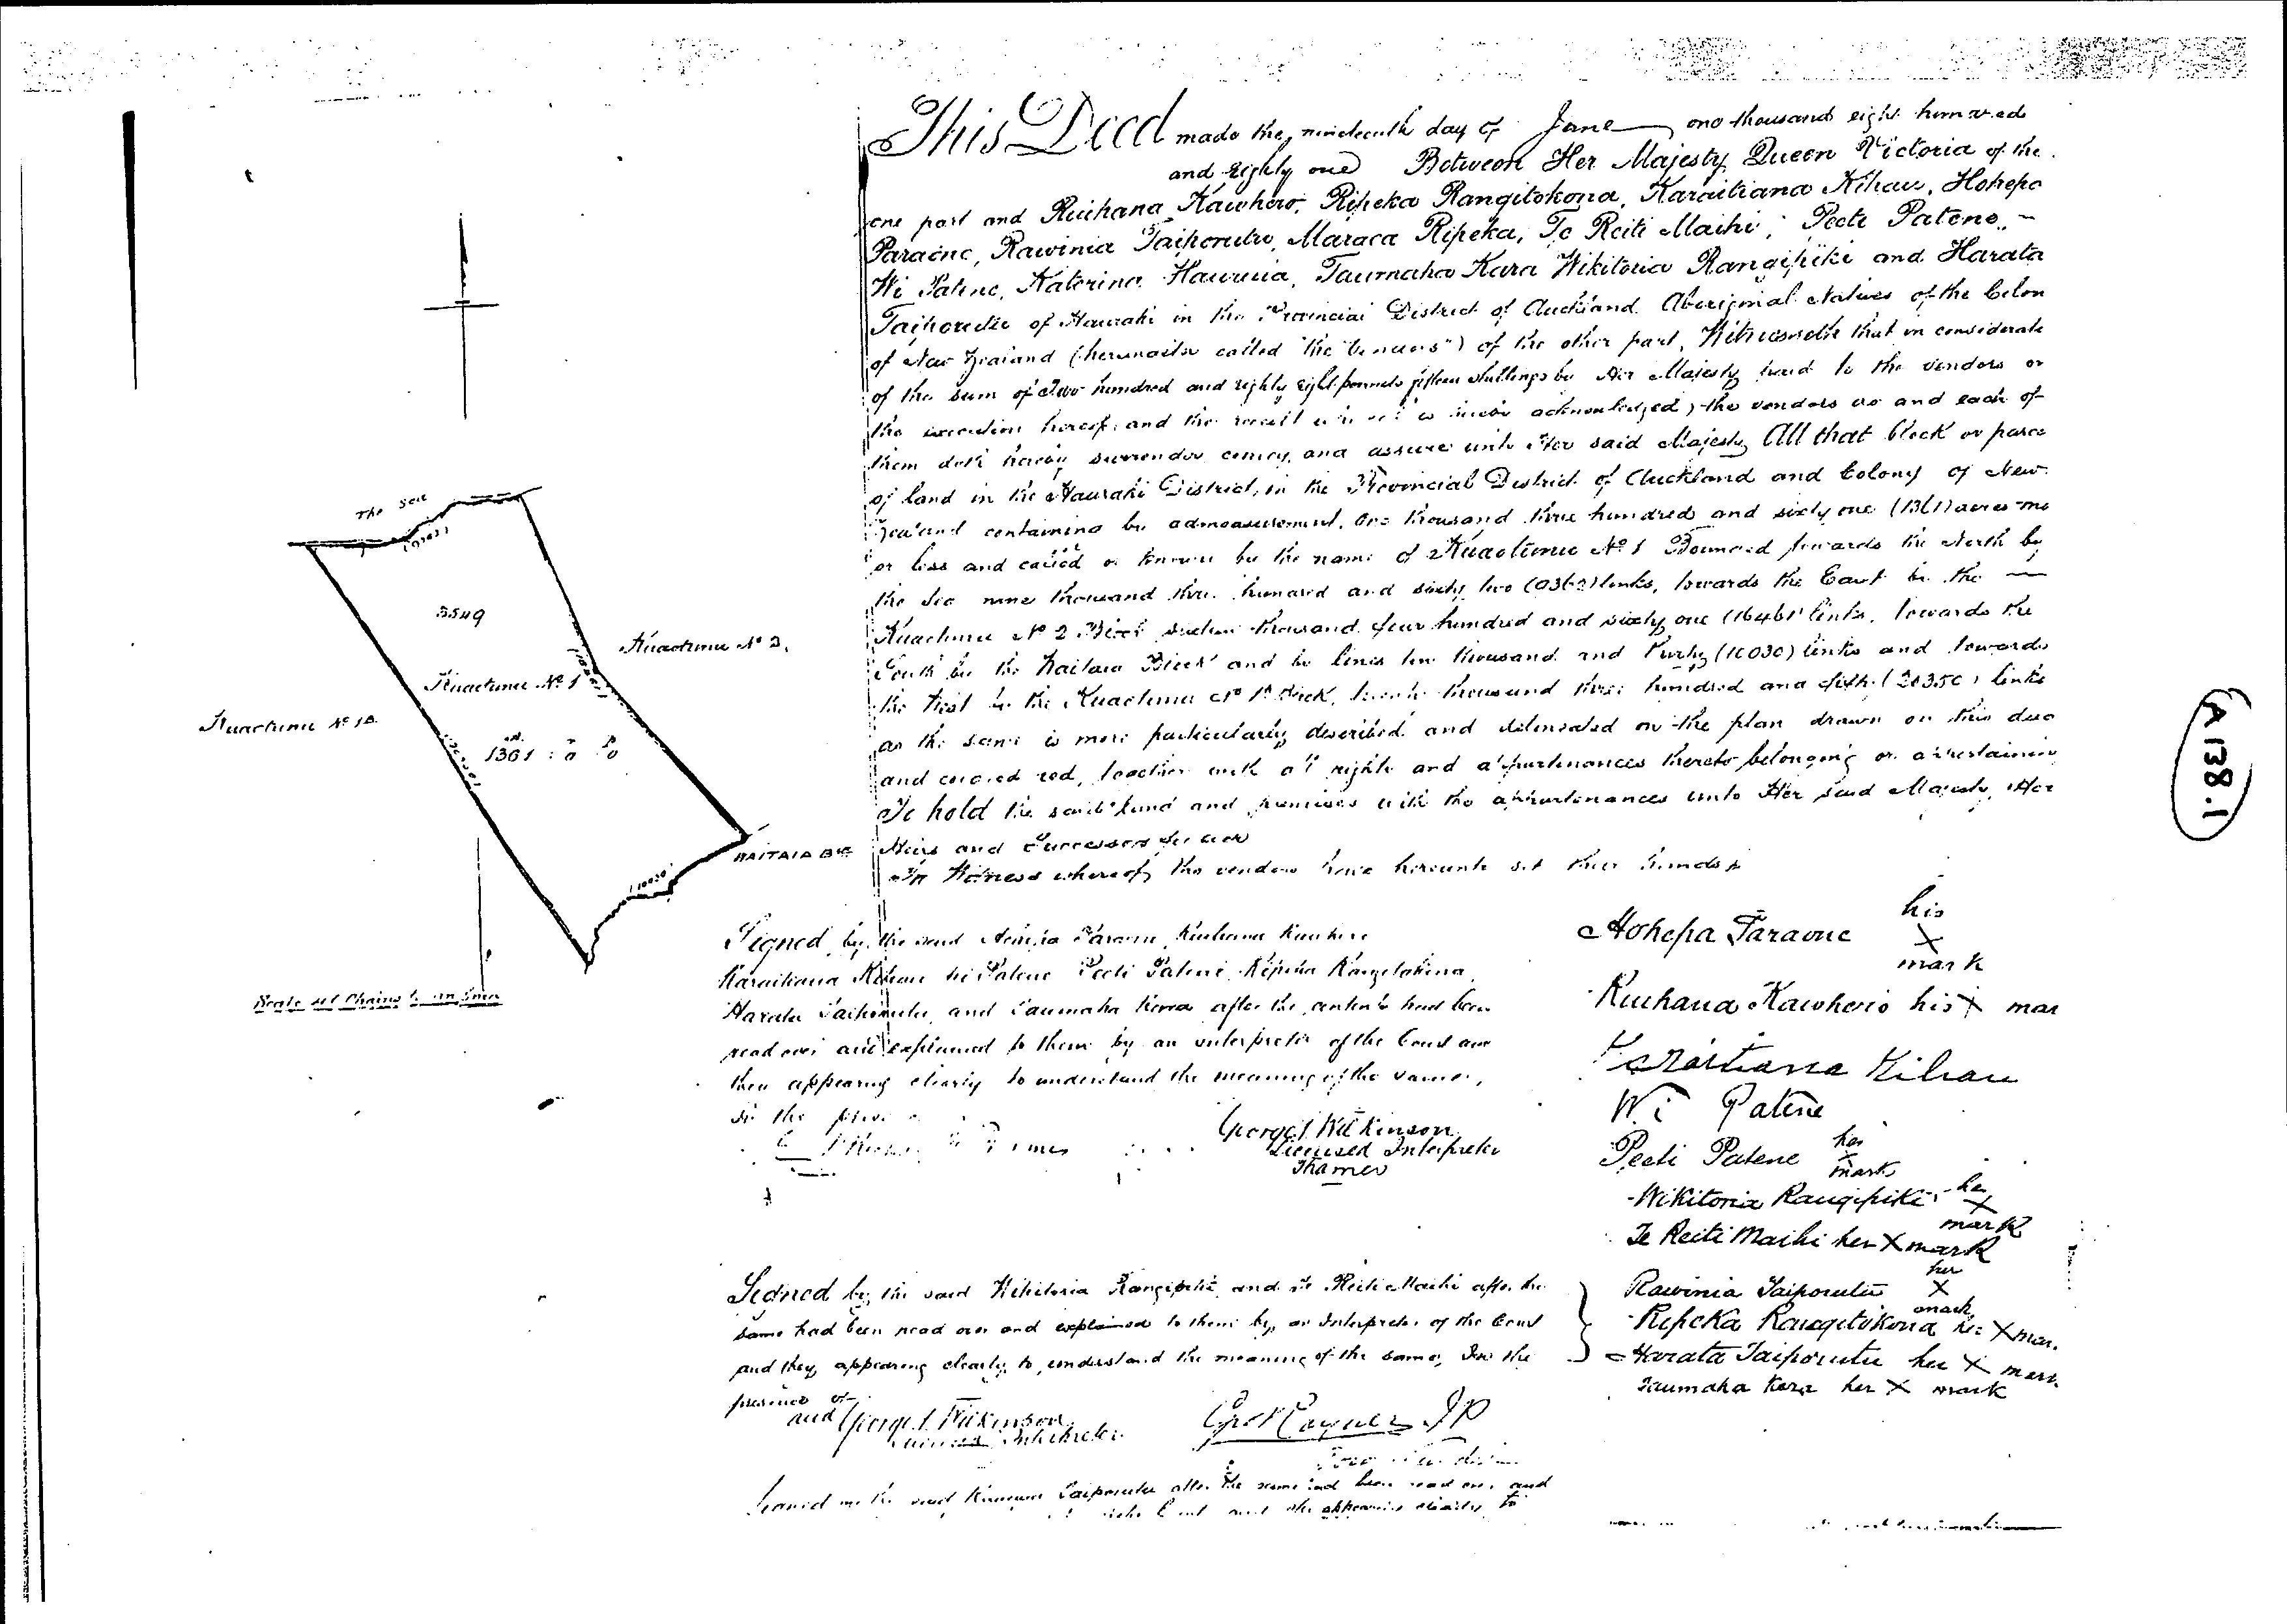 This Deed made the nineteenth day of June one thousand eight hundred
and eighty one Between Her Majesty Queen Victoria of the
one part and Ruihana Kawhero, Ripeka Rangitokona, Karaitiana Kihau, Hohepa
Paraone, Rawinia Taiporutu, Maraea Ripeka, Te Reiti Maihi, Peeti Patene,
Wi Patene, Katerina Hauruia, Taumaha Kara Wikitoria Rangipiki and Harata
Taiporutu of Hauraki in the Provincial District of Auckland Aboriginal Natives of the Colon
of New Zealand (hereinafter called "the Vendors") of the other part, Witnesseth that in considerate
of the sum of Two hundred and eighty eight pounds fifteen shillings by Her Majesty paid to the vendors on
the execution hereof and the receipt is hereby acknowledged, the vendors do and each of
them doth hereby surrender convey and assure unto Her said Majesty All that block or parce
of land in the Hauraki District, in the Provincial District of Auckland and Colony of New
Zealand containing by admeasurement, one thousand three hundred and sixty one (1361) acres mo
or less and called or known by the name of Kuaotunu No 1 Bounded towards the North by
the Sea nine thousand three hundred and sixty two (9362) links, towards the East by the
Kuaotunu No 2 Block sixteen thousand four hundred and sixty one (16461) links, towards the
South by the Kaitaia Block and by lines ten thousand and thirty (10030) links and towards
the West by the Kuaotunu No 1A Block, twenty thousand three hundred and fifty (20350) links
as the same is more particularly described and delineated on the plan drawn on this deed
and colored red, together with all rights and appurtenances thereto belonging or appertaining
To hold the said land and premises with the appurtenances unto Her said Majesty Her
Heirs and Successors for ever
In Witness whereof the vendors have hereunto set their hands
The Sea
(9362)
3549
Kuaotunu No 2.
Kuaotunu No 1
Kuaotunu No 1A
1361 : 0 0
KAITAIA BLK
(10030)
Scale Chains to an Inch
A 138.1
Signed by the said Hohepa Paraone, Ruihana Kawhero
Karaitiana Kihau Wi Patene Peeti Patene Ripeka Rangitokona
Harata Taiporutu, and Taumaha Kera after the contents had been
read over and explained to them by an interpreter of the Court and
they appearing clearly to understand the meaning of the same,
in the
George T. Wilkinson
Licensed Interpreter
Thames
Hohepa Paraone his X mark
Ruihana Kawhero his X mar
Karaitiana Kihau
Wi Patene
Peeti Patene her X mark
Wikitoria Rangipiki her X mark
Te Reiti Maihi her X mark
Rawinia Taiporutu her X mark
Ripeka Rangitokona her X mar.
Harata Taiporutu her X mark
Taumaha Kera her X mark
Signed by the said Wikitoria Rangipiki and Te Reiti Maihi after the
same had been read over and explained to them by an Interpreter of the Court
and they appearing clearly to understand the meaning of the same, In the
presence of
and George T. Wilkinson
Licensed Interpreter
J P
Signed by the said Taiporutu after the same had been read over and
and she appearing clearly to